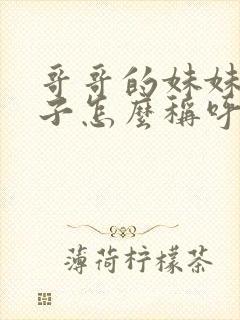 哥哥的妹妹
子怎麼稱呼
薄荷柠檬茶